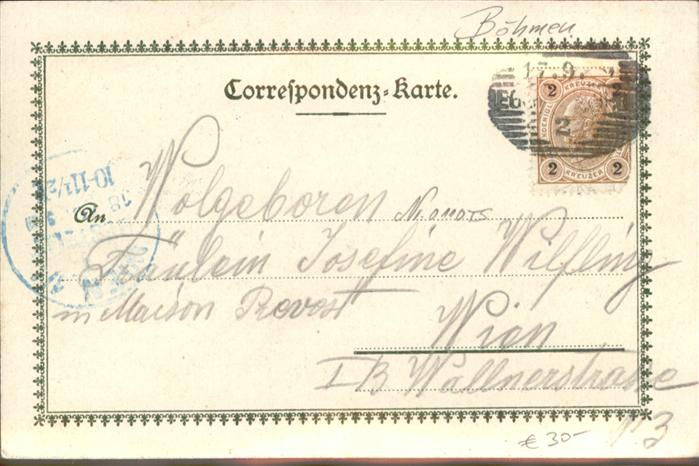 Böhmen
Correspondenz-Karte.
17. 9.
2 KREUZER 2
2
2 KREUZER 2
10-11½
An Wolgeboren
Fräulein Josefine Wilfling
in Maison Provost
Wien
I B Wallnerstraße
№ 3
€ 30-